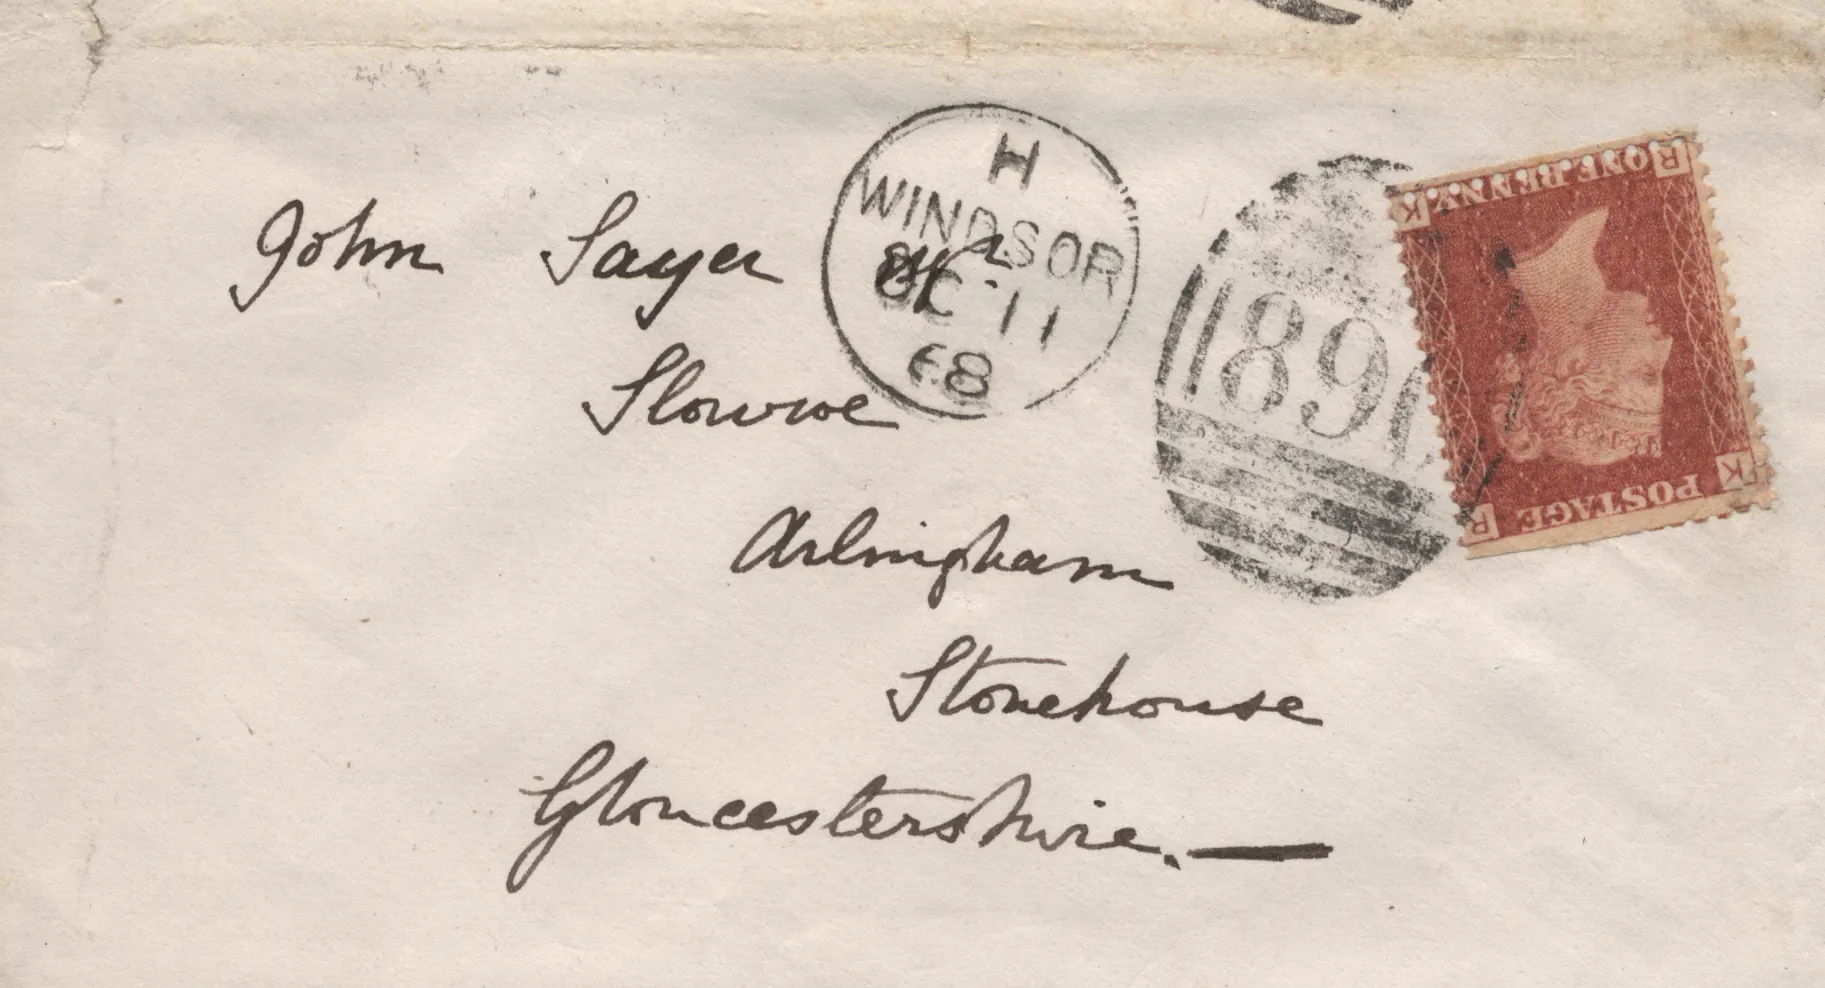 John Sayer Esqr
Slowwe
Arlingham
Stonehouse
Gloucestershire.—
H
WINDSOR
OC 11
68
890
R ONE PENNY K
K POSTAGE R